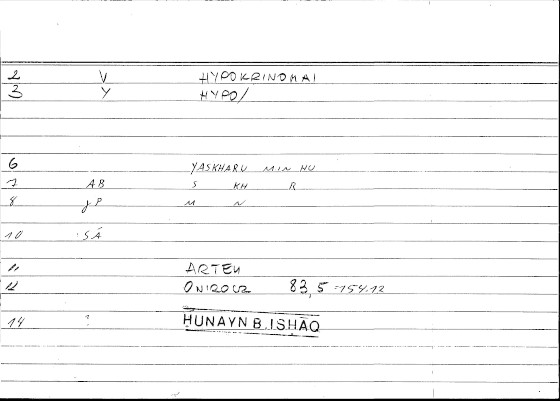 2 V HYPOKRINOMAI
3 Y HYPO/
6 YASKHARU MIN HU
7 AB S KH R
8 JP M N
10 SĀ
11 ARTEM
12 ONIROCR 83,5 = 154.12
14 ? ḤUNAYN B. ISḤĀQ